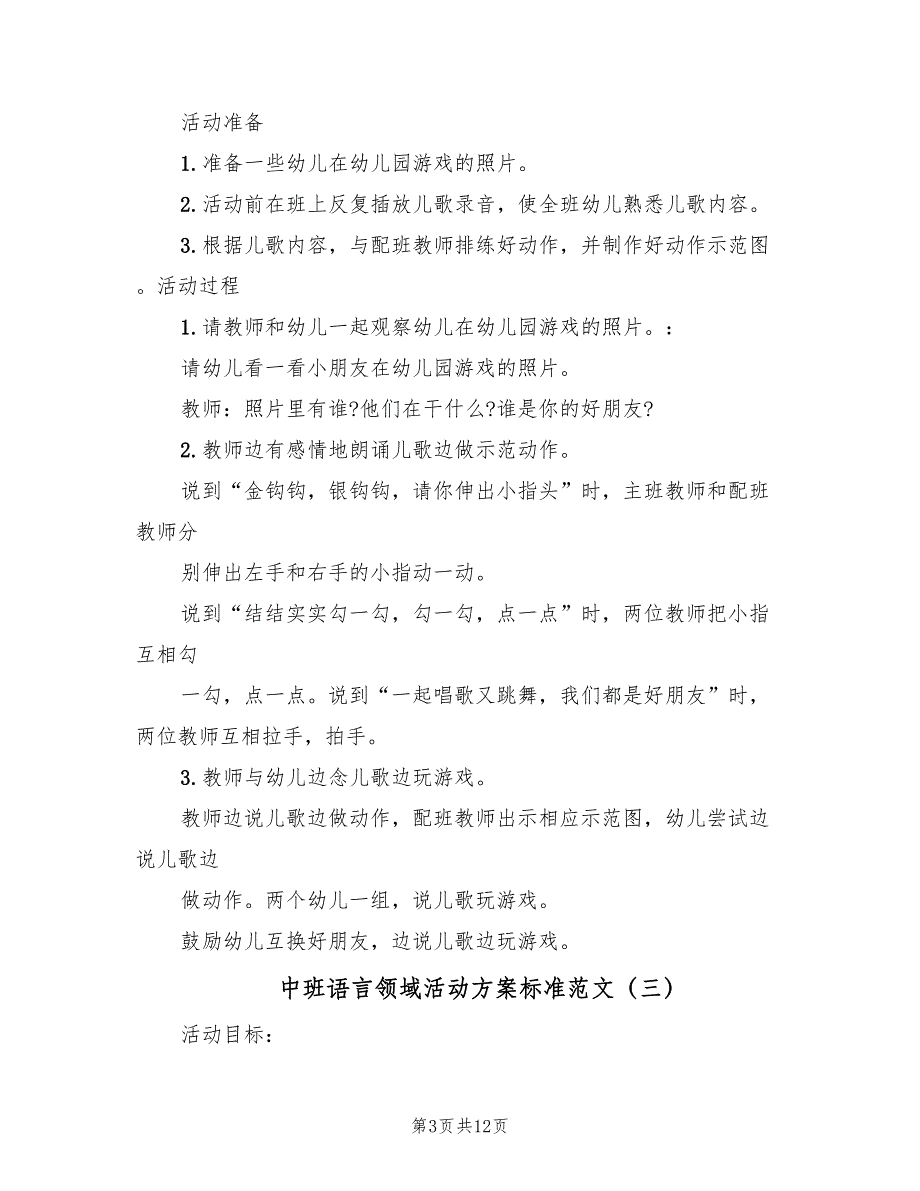 活动准备
1. 准备一些幼儿在幼儿园游戏的照片。
2. 活动前在班上反复播放儿歌录音，使全班幼儿熟悉儿歌内容。
3. 根据儿歌内容，与配班教师排练好动作，并制作好动作示范图
。活动过程
1. 请教师和幼儿一起观察幼儿在幼儿园游戏的照片。:
请幼儿看一看小朋友在幼儿园游戏的照片。
教师：照片里有谁?他们在干什么?谁是你的好朋友?
2. 教师边有感情地朗诵儿歌边做示范动作。
说到“金钩钩，银钩钩，请你伸出小指头”时，主班教师和配班
教师分
别伸出左手和右手的小指动一动。
说到“结结实实勾一勾，勾一勾，点一点”时，两位教师把小指
互相勾
一勾，点一点。说到“一起唱歌又跳舞，我们都是好朋友”时，
两位教师互相拉手，拍手。
3. 教师与幼儿边念儿歌边玩游戏。
教师边说儿歌边做动作，配班教师出示相应示范图，幼儿尝试边
说儿歌边
做动作。两个幼儿一组，说儿歌玩游戏。
鼓励幼儿互换好朋友，边说儿歌边玩游戏。
中班语言领域活动方案标准范文（三）
活动目标：
第3页共12页